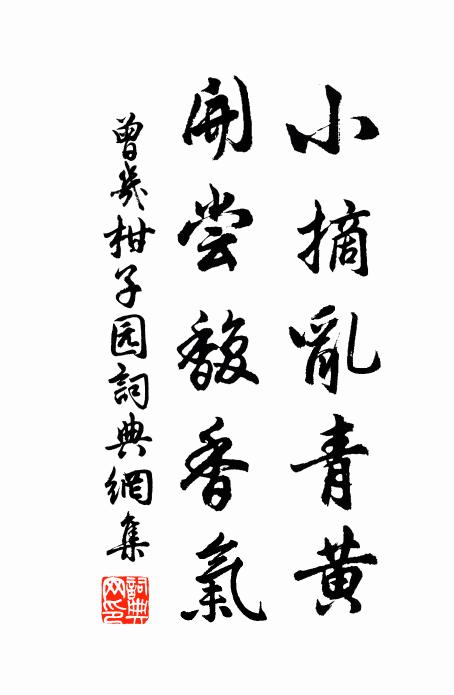 小摘亂青黃
開尝馥香氣
曾幾柑子园詞典網集
詞典网印